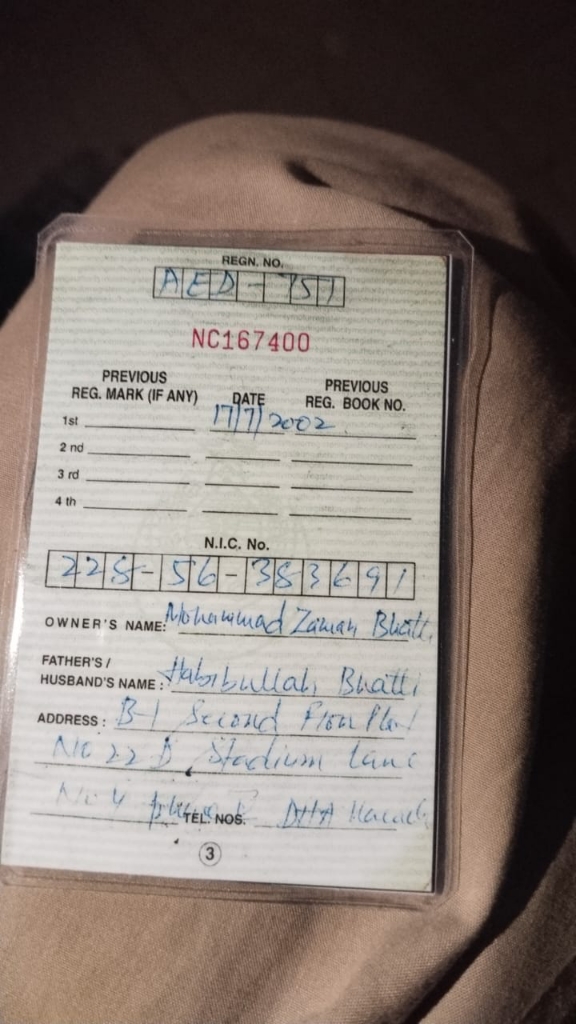 REGN. NO.
AED-751
NC167400
PREVIOUS REG. MARK (IF ANY) DATE PREVIOUS REG. BOOK NO.
1st 17/7/2002
2 nd
3 rd
4 th
N.I.C. No.
228-56-383691
OWNER'S NAME: Mohammad Zaman Bhatti
FATHER'S / HUSBAND'S NAME : Habibullah Bhatti
ADDRESS : B-1 Second Floor Plot
No 22 D Stadium Lane
No 4 TEL. NOS. DHA Karachi
3